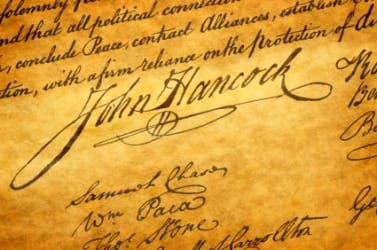 solemnly p
and that all political connection
, conclude Peace, contract Alliances, establish
tion, with a firm reliance on the Protection of di
John Hancock
Samuel Chase
Wm Paca
Thos Stone
Carrollton